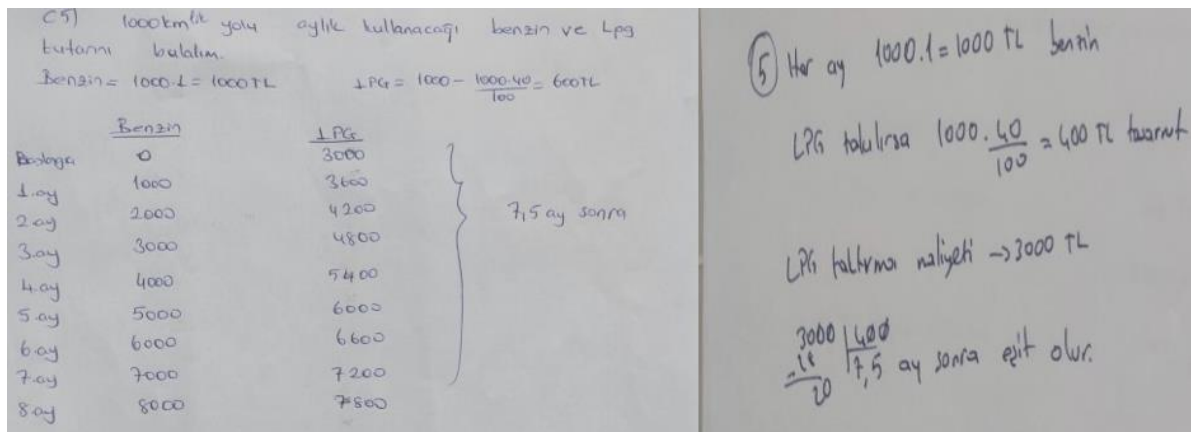 C5) 1000km'lik yolu aylık kullanacağı benzin ve Lpg
tutarını bulalım.
Benzin = 1000.1 = 1000TL LPG = 1000 - 1000.40/100 = 600TL
Benzin LPG
0 3000
1.ay 1000 3600
2.ay 2000 4200
3.ay 3000 4800
4.ay 4000 5400
5.ay 5000 6000
6.ay 6000 6600
7.ay 7000 7200
8.ay 8000 7800
7,5 ay sonra
5 Her ay 1000.1 = 1000 TL benzin
LPG takılırsa 1000.40/100 = 400 TL tasarruf
LPG taktırma maliyeti → 3000 TL
3000 | 400
-28 7,5 ay sonra eşit olur.
20